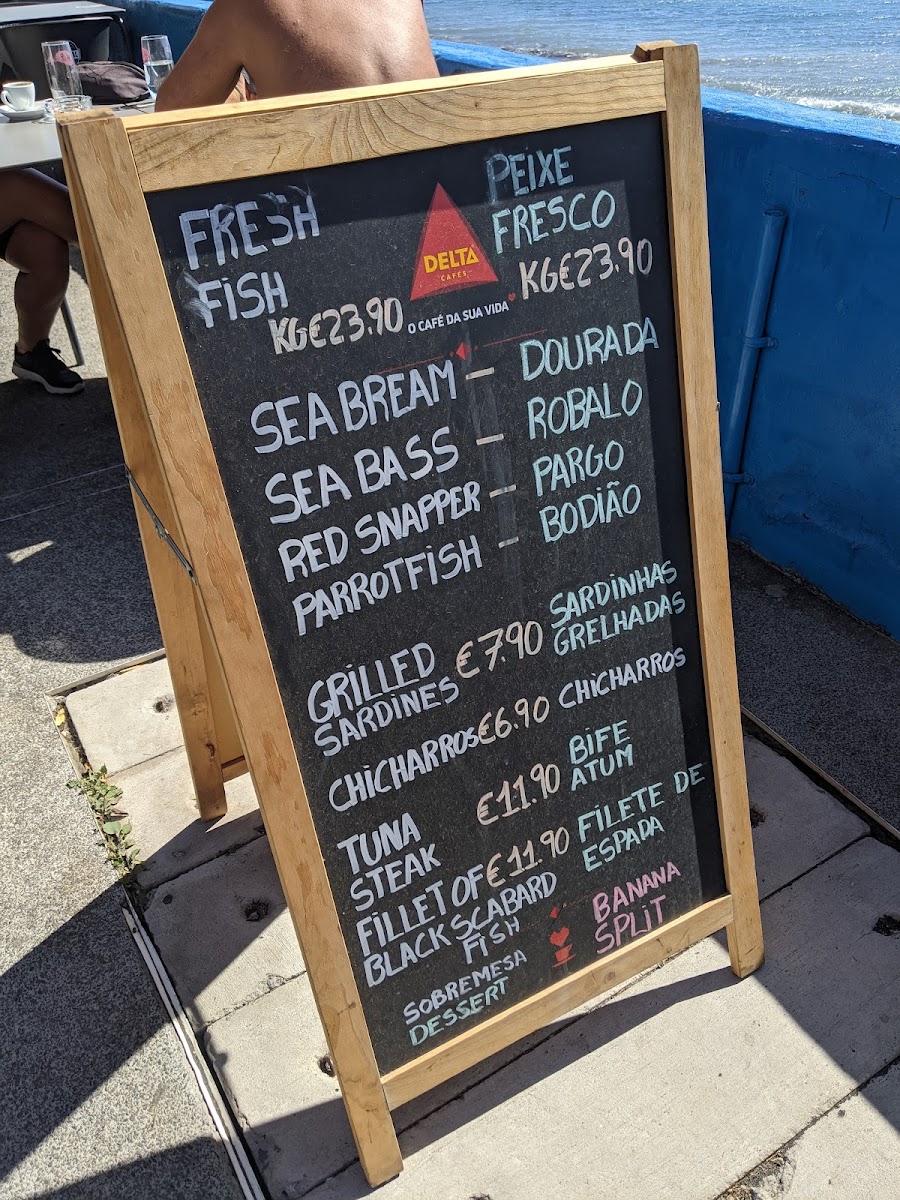 FRESH
FISH
KG€23.90
DELTA
CAFÉS
O CAFÉ DA SUA VIDA
PEIXE
FRESCO
KG€23.90
SEA BREAM - DOURADA
SEA BASS - ROBALO
RED SNAPPER - PARGO
PARROTFISH - BODIÃO
GRILLED
SARDINES
€7.90
SARDINHAS
GRELHADAS
CHICHARROS €6.90 CHICHARROS
TUNA
STEAK
€11.90
BIFE
ATUM
FILLET OF
BLACK SCABARD
FISH
€11.90
FILETE DE
ESPADA
SOBREMESA
DESSERT
BANANA
SPLIT